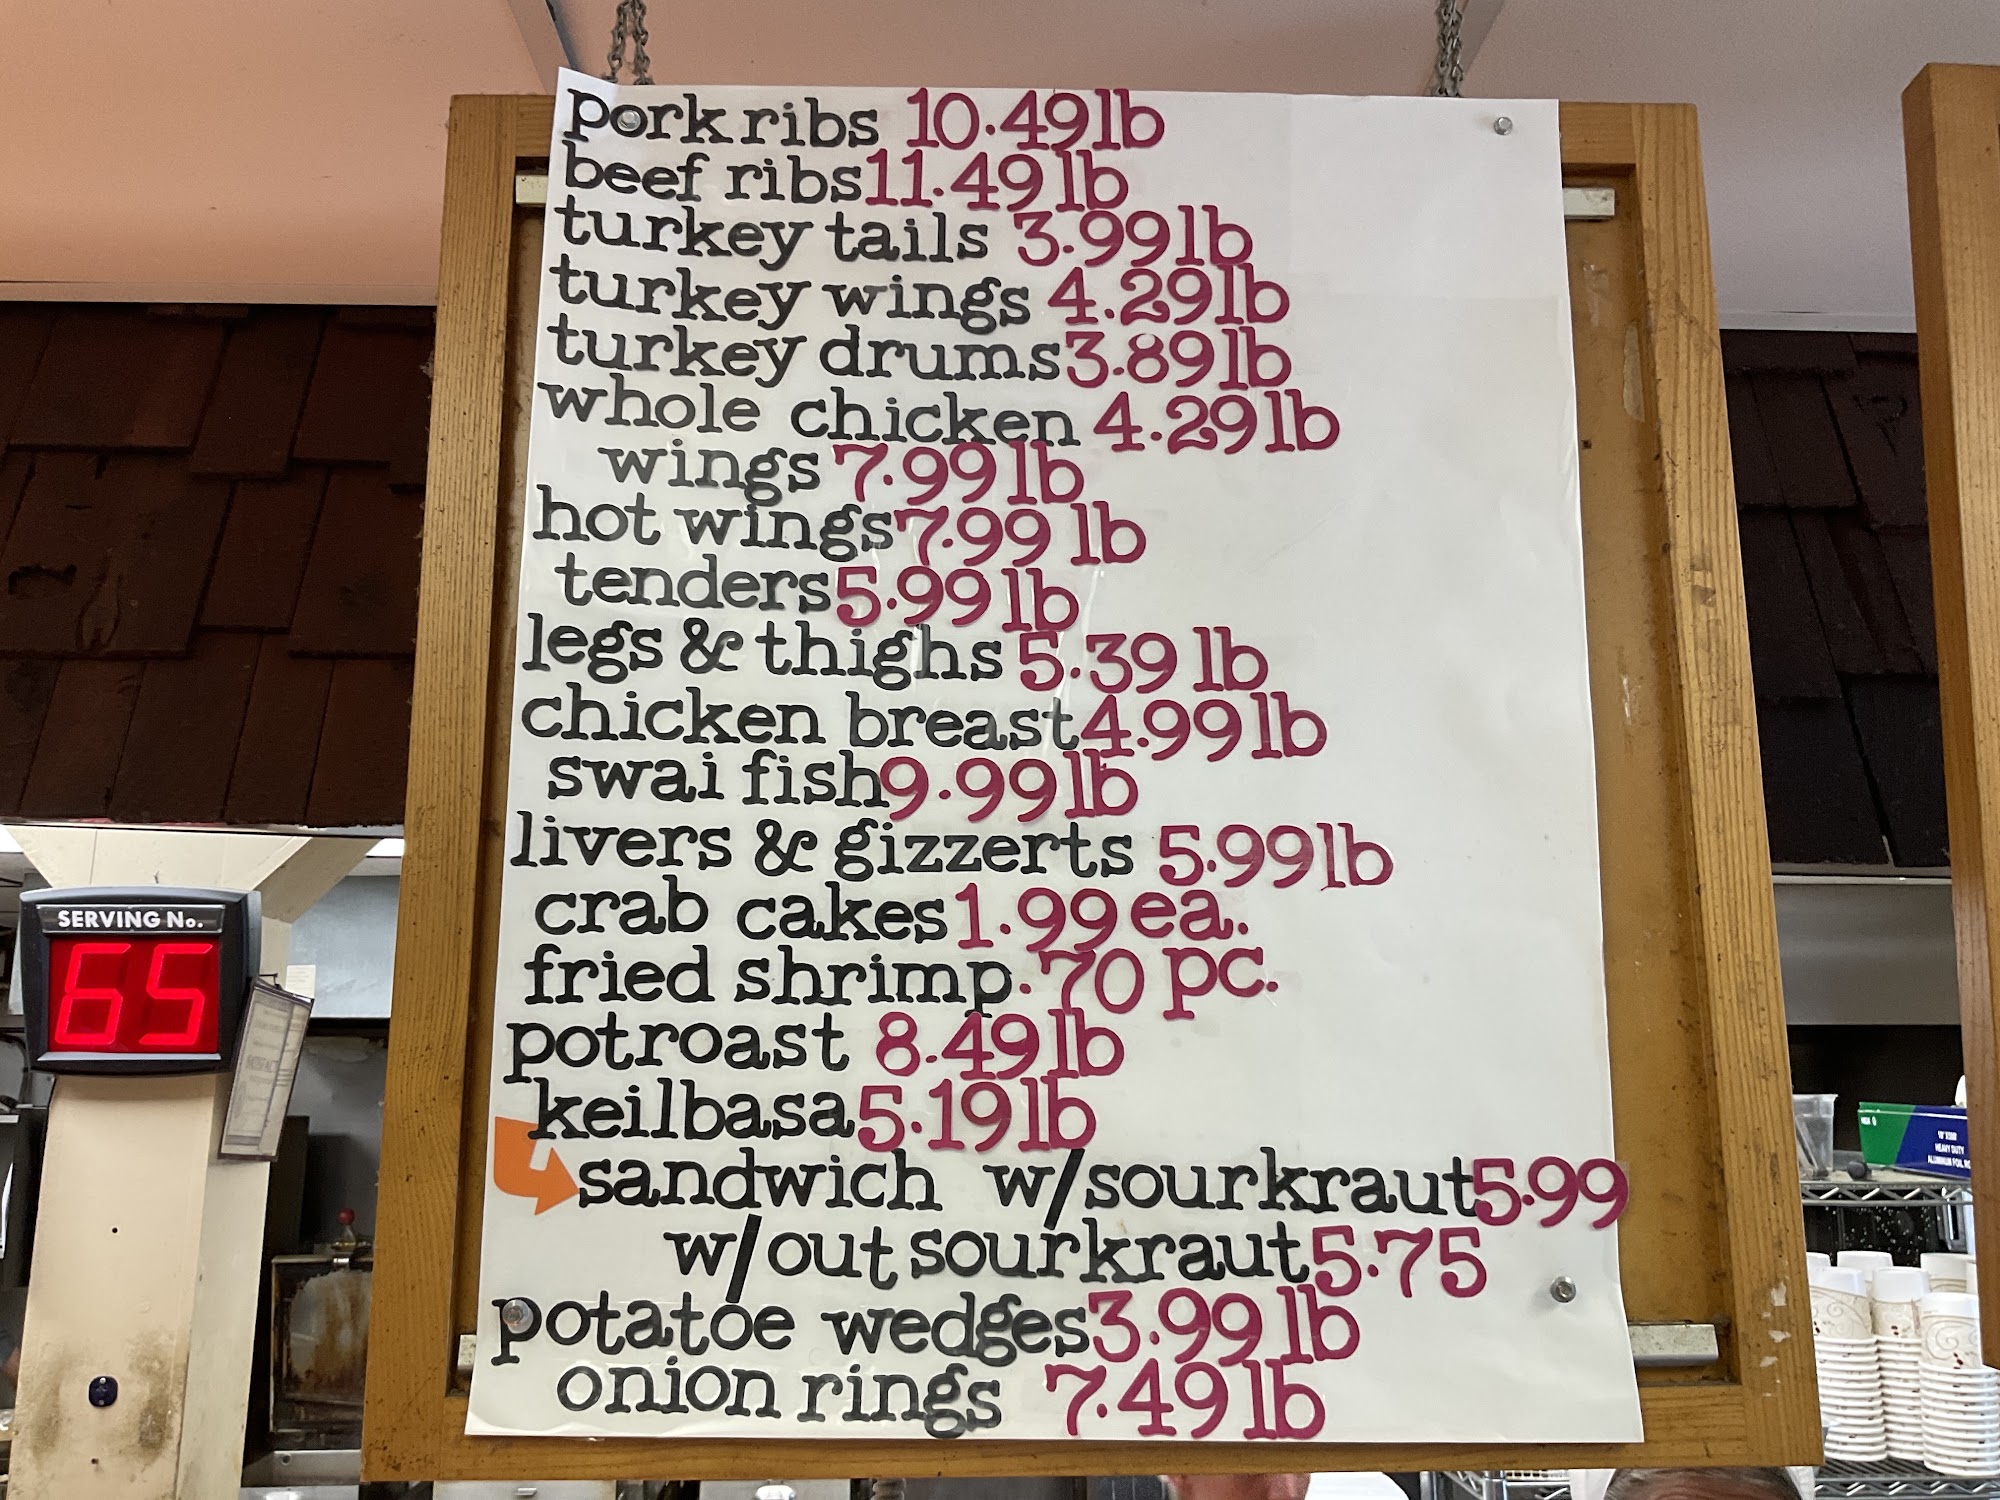 pork ribs 10.49 lb
beef ribs 11.49 lb
turkey tails 3.99 lb
turkey wings 4.29 lb
turkey drums 3.89 lb
whole chicken 4.29 lb
wings 7.99 lb
hot wings 7.99 lb
tenders 5.99 lb
legs & thighs 5.39 lb
chicken breast 4.99 lb
swai fish 9.99 lb
livers & gizzerts 5.99 lb
crab cakes 1.99 ea.
fried shrimp .70 pc.
potroast 8.49 lb
keilbasa 5.19 lb
sandwich w/sourkraut 5.99
w/out sourkraut 5.75
potatoe wedges 3.99 lb
onion rings 7.49 lb
SERVING No.
65
HEAVY DUTY